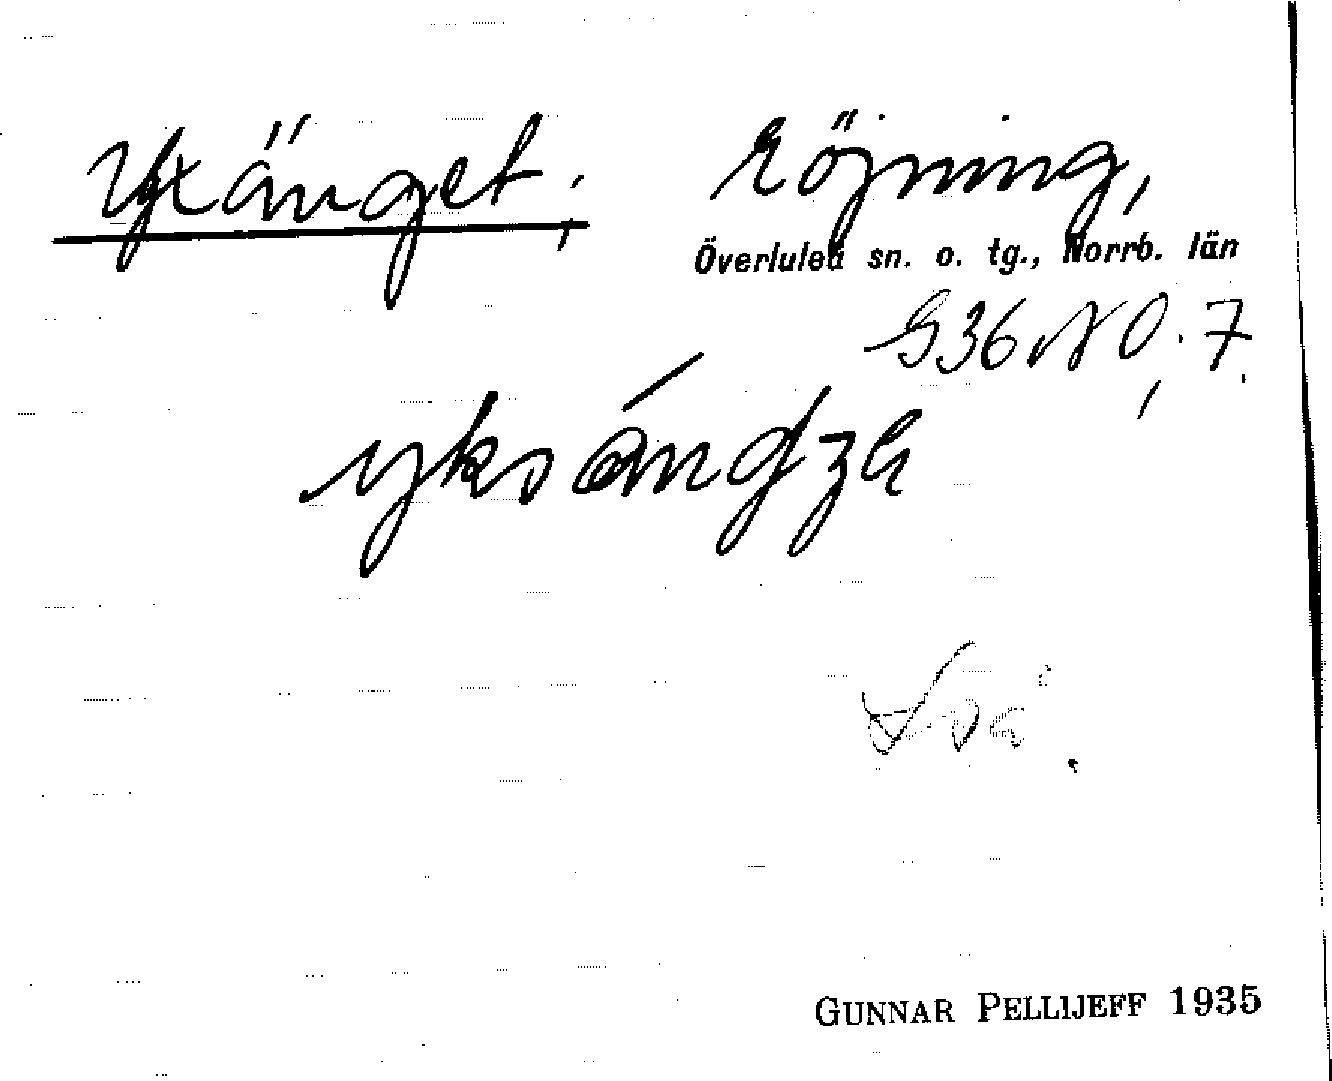 Yxänget, röjning,
Överluleå sn. o. tg., Norrb. län
G36 NO, 7.
GUNNAR PELLIJEFF 1935